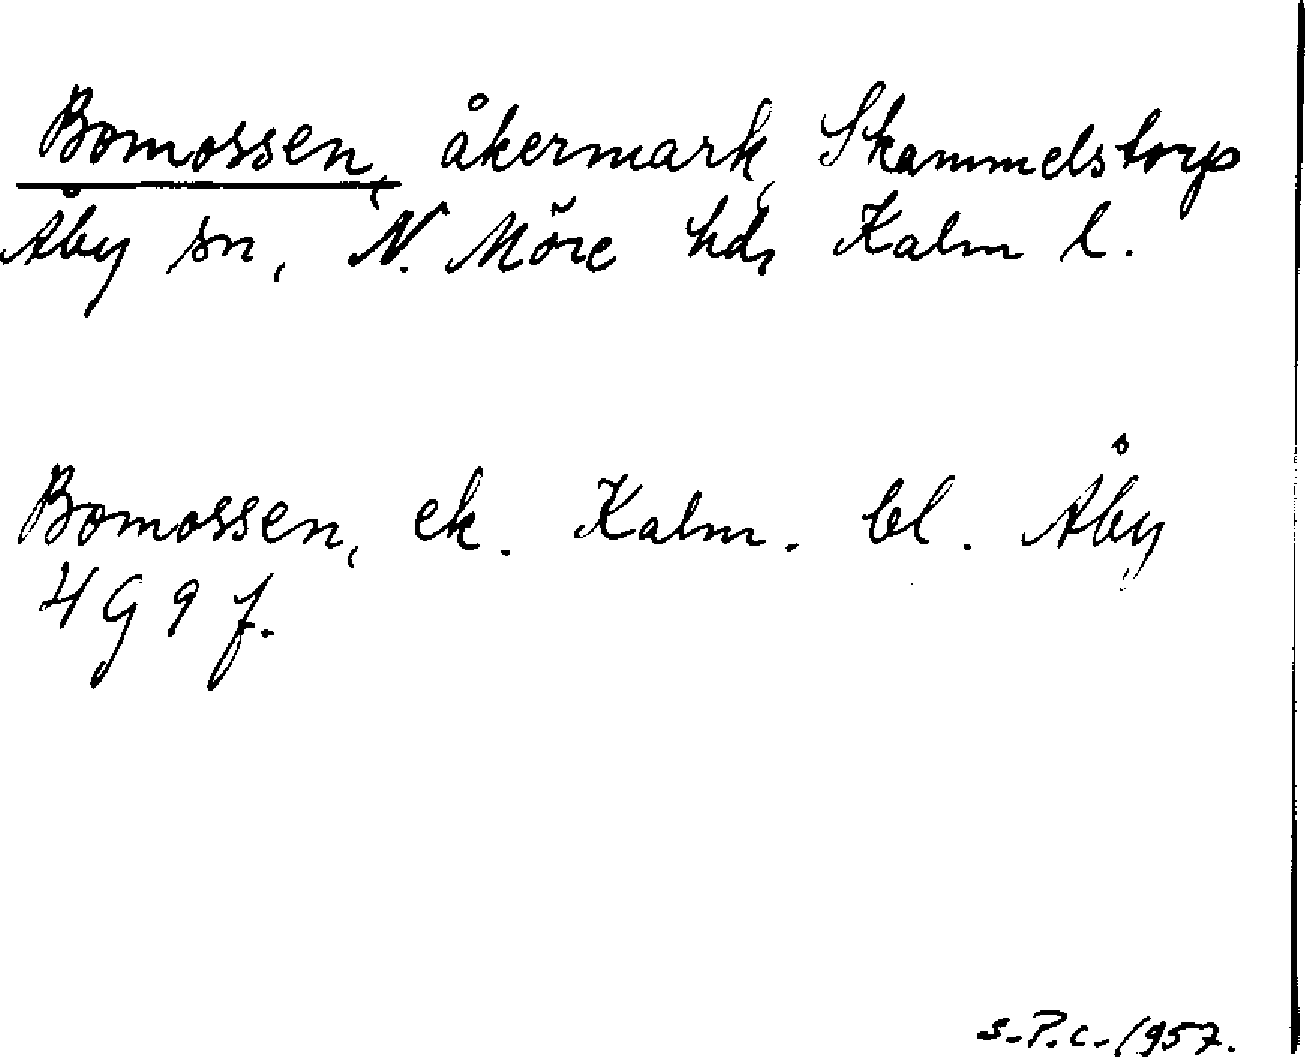 Bomossen, åkermark, Skammelstorp
Åby sn, N. Möre hd, Kalm l.
Bomossen, ek. Kalm. bl. Åby
4 G 9 f.
S.P.C. 1957.